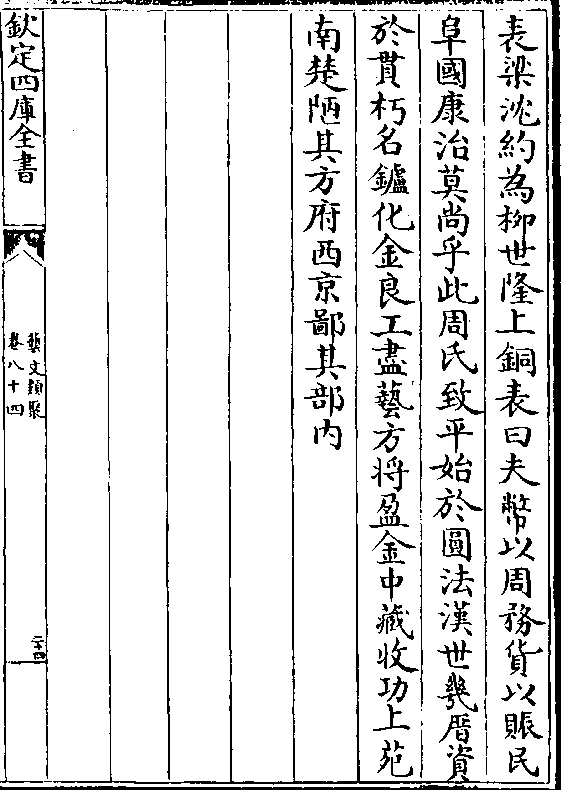 表梁沈約為栁世隆上銅表曰夫幣以周務貨以賑民
阜國康治莫尚乎此周氏致平始於圓法漢世幾厝資
於貫朽名鑪化金良工盡藝方將盈金中藏收功上苑
南楚陋其方府西京鄙其部内
欽定四庫全書
藝文類聚
卷八十四
二十四